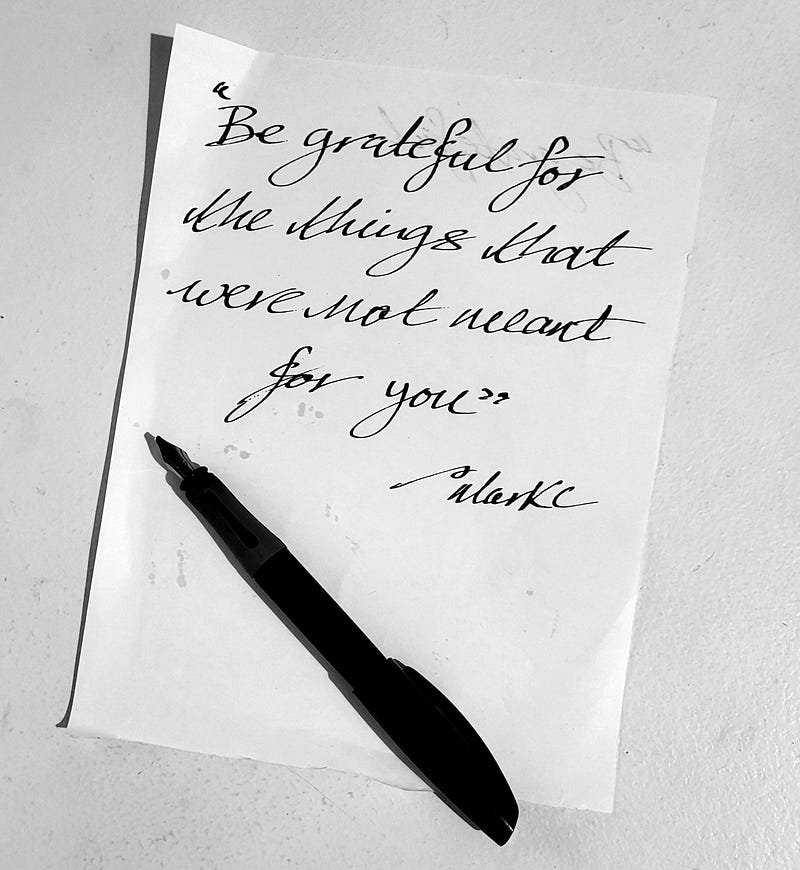 “Be grateful for
the things that
were not meant
for you”
~MarkC